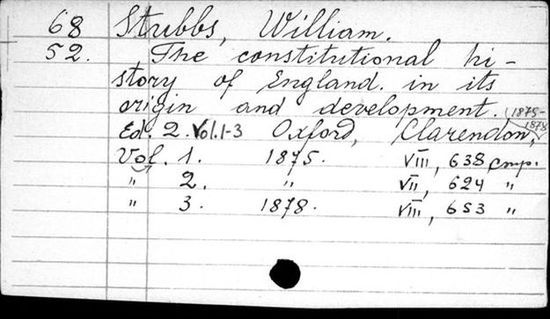 68 Stubbs, William.
52. The constitutional hi-
story of England. in its
origin and development. (1875-
1878)
Ed. 2. Vol. 1-3 Oxford, Clarendon,
Vol. 1. 1875. VIII, 638 стр.
" 2. " VII, 624 "
" 3. 1878. VIII, 653 "